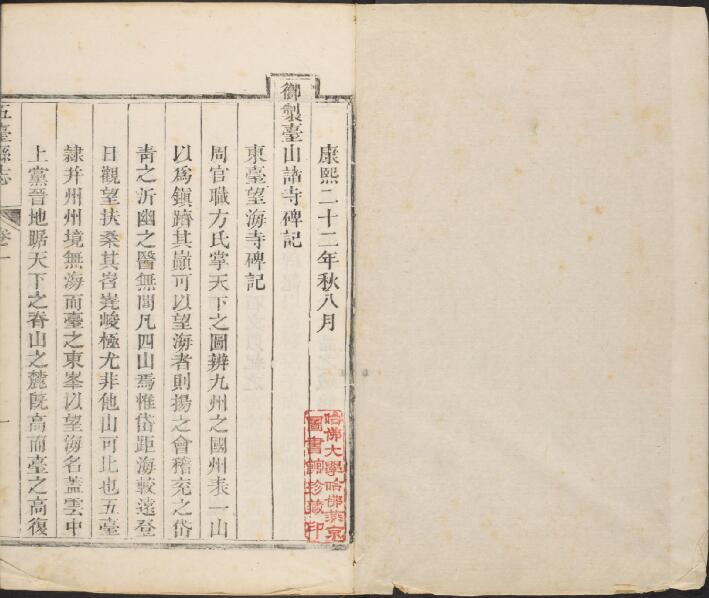 康熙二十二年秋八月
御製臺山諸寺碑記
東臺望海寺碑記
周官職方氏掌天下之圖辨九州之國州表一山
以爲鎭躋其巔可以望海者則揚之會稽兗之岱
靑之沂幽之醫無閭凡四山焉惟岱距海較遠登
日觀望扶桑其岧嶤峻極尤非他山可比也五臺
隸并州州境無海而臺之東峯以望海名蓋雲中
上黨晉地踞天下之脊山之麓旣高而臺之高復
五臺縣志
卷一
一
哈佛大學哈佛燕京
圖書館珍藏印